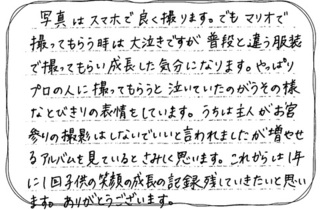 写真はスマホで良く撮ります。でもマリオで
撮ってもらう時は大泣きですが普段と違う服装
で撮ってもらい成長した気分になります。やっぱり
プロの人に撮ってもらうと泣いていたのがうその様
なとびきりの表情をしています。うちは主人がお宮
参りの撮影はしないでいいと言われましたが増やせ
るアルバムを見ているとさみしく思います。これからは1年
に1回子供の笑顔の成長の記録、残していきたいと思い
ます。ありがとうございます。